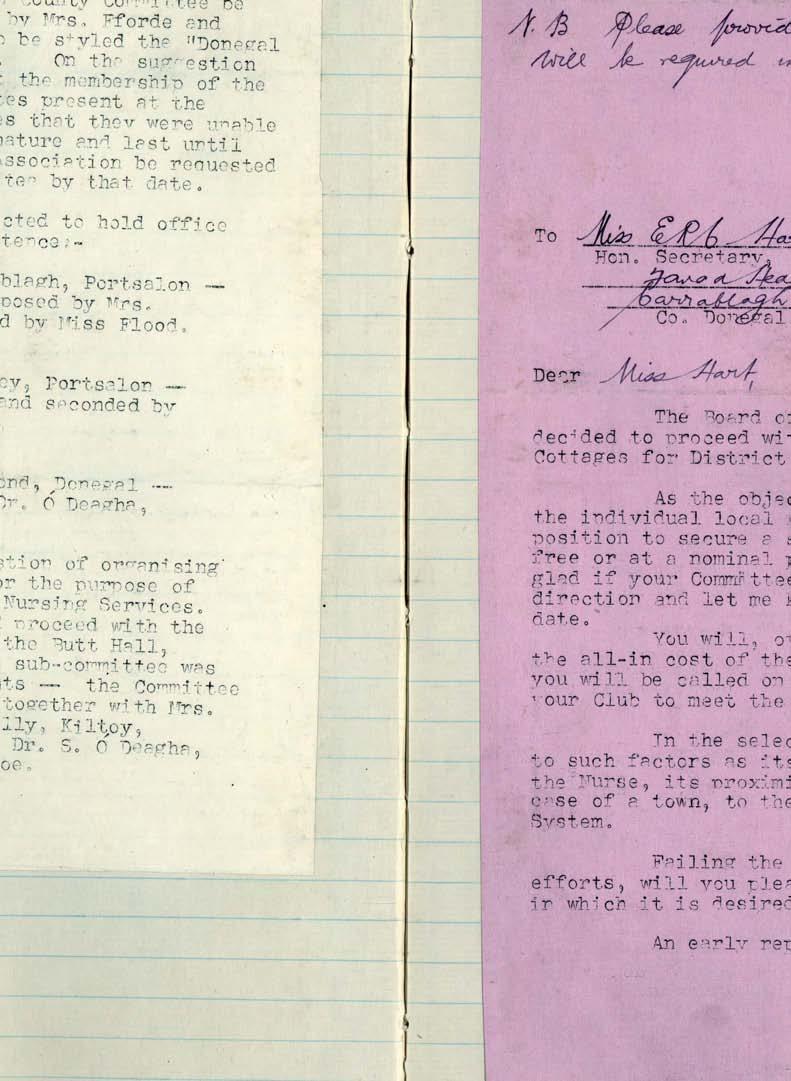 County Committee be
by Mrs. Fforde and
o be styled the "Donegal
. On the suggestion
t the membership of the
tes present at the
s that they were unable
nature and last until
Association be requested
tee by that date.
cted to hold office
tence:-
blagh, Portsalon —
posed by Mrs.
d by Miss Flood.
ey, Portsalon —
and seconded by
ond, Donegal —
Dr. Ó Deagha,
stion of organising
or the purpose of
Nursing Services.
proceed with the
the Butt Hall,
sub-committee was
ts — the Committee
together with Mrs.
lly, Kiltoy,
Dr. S. Ó Deagha,
oe.
N.B Please provid
will be required in
To Miss E R L Ha
Hon. Secretary,
Carrablagh
Co. Donegal
Dear Miss Hart,
The Board o
decided to proceed wi
Cottages for District
As the obje
the individual local
position to secure a s
free or at a nominal p
glad if your Committee
direction and let me
date.
You will, o
the all-in cost of the
you will be called on
your Club to meet the
In the selec
to such factors as its
the Nurse, its proximi
case of a town, to the
System.
Failing the
efforts, will you plea
in which it is desired
An early rep